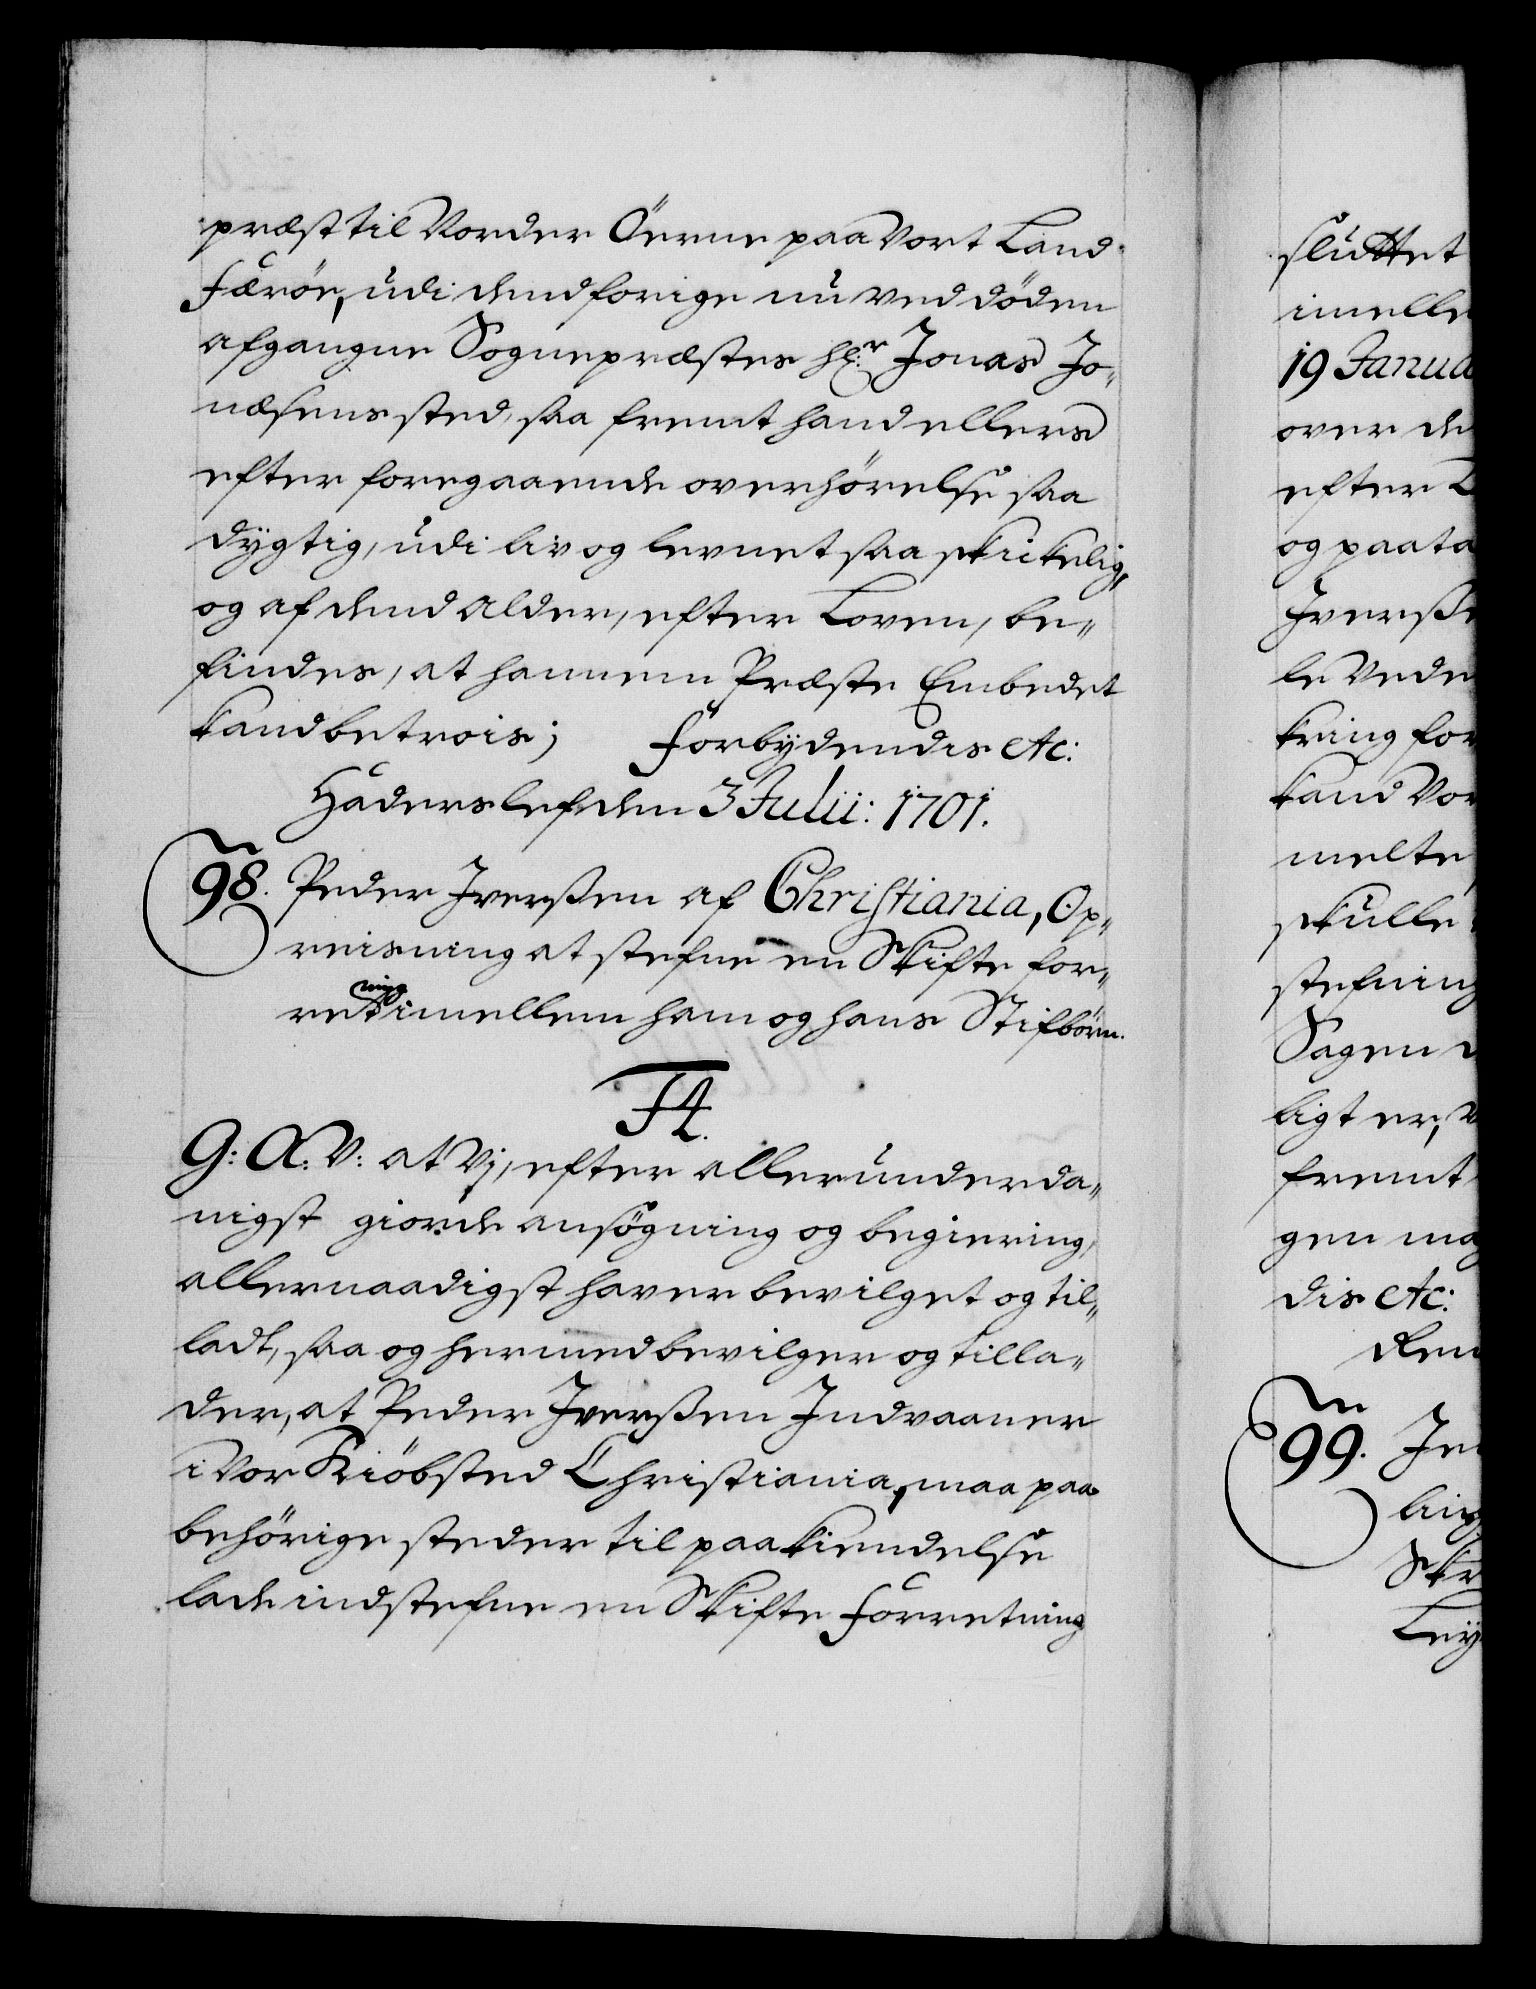 præst til Norder Öerne paa Vort Land
Færöe, udi dend forige nu ved döden
afgangne Sognepræstes hl:r Jonas Jo„
næsens sted, saa fremt hand ellers
efter foregaaende overhörelse saa
dygtig, udi liv og levnet saa skickelig,
og af dend Alder, efter Loven, be„
findes, at hannem Præste Embedet
kand betrois; Forbydendis etc:
Haderslef den 3 Julii: 1701.
98. Peder Iverßen af Christiania, Op„
reisning at stefne en Skifte for„
retning imellem ham og hans Stifbörn.
F4.
G: A: V: at Vj, efter allerunderda„
nigst giorde ansögning og begiering,
allernaadigst haver bevilget og til„
ladt, saa og hermed bevilger og tilla„
der, at Peder Iverßen Indvaaner
i Vor Kiöbsted Christiania, maa paa
behörige steder til paakiendelse
lade indstefne en Skifte Forretning
sluttet
imelle
19 Janua
over de
efter L
og paata
Iverße
le Vede
kring for
kand Vor
melte,
skulle
stefning
Sagen
ligt er, V
fremt
gen ma
dis etc:
den
99. Je
ling
Skr
Ley